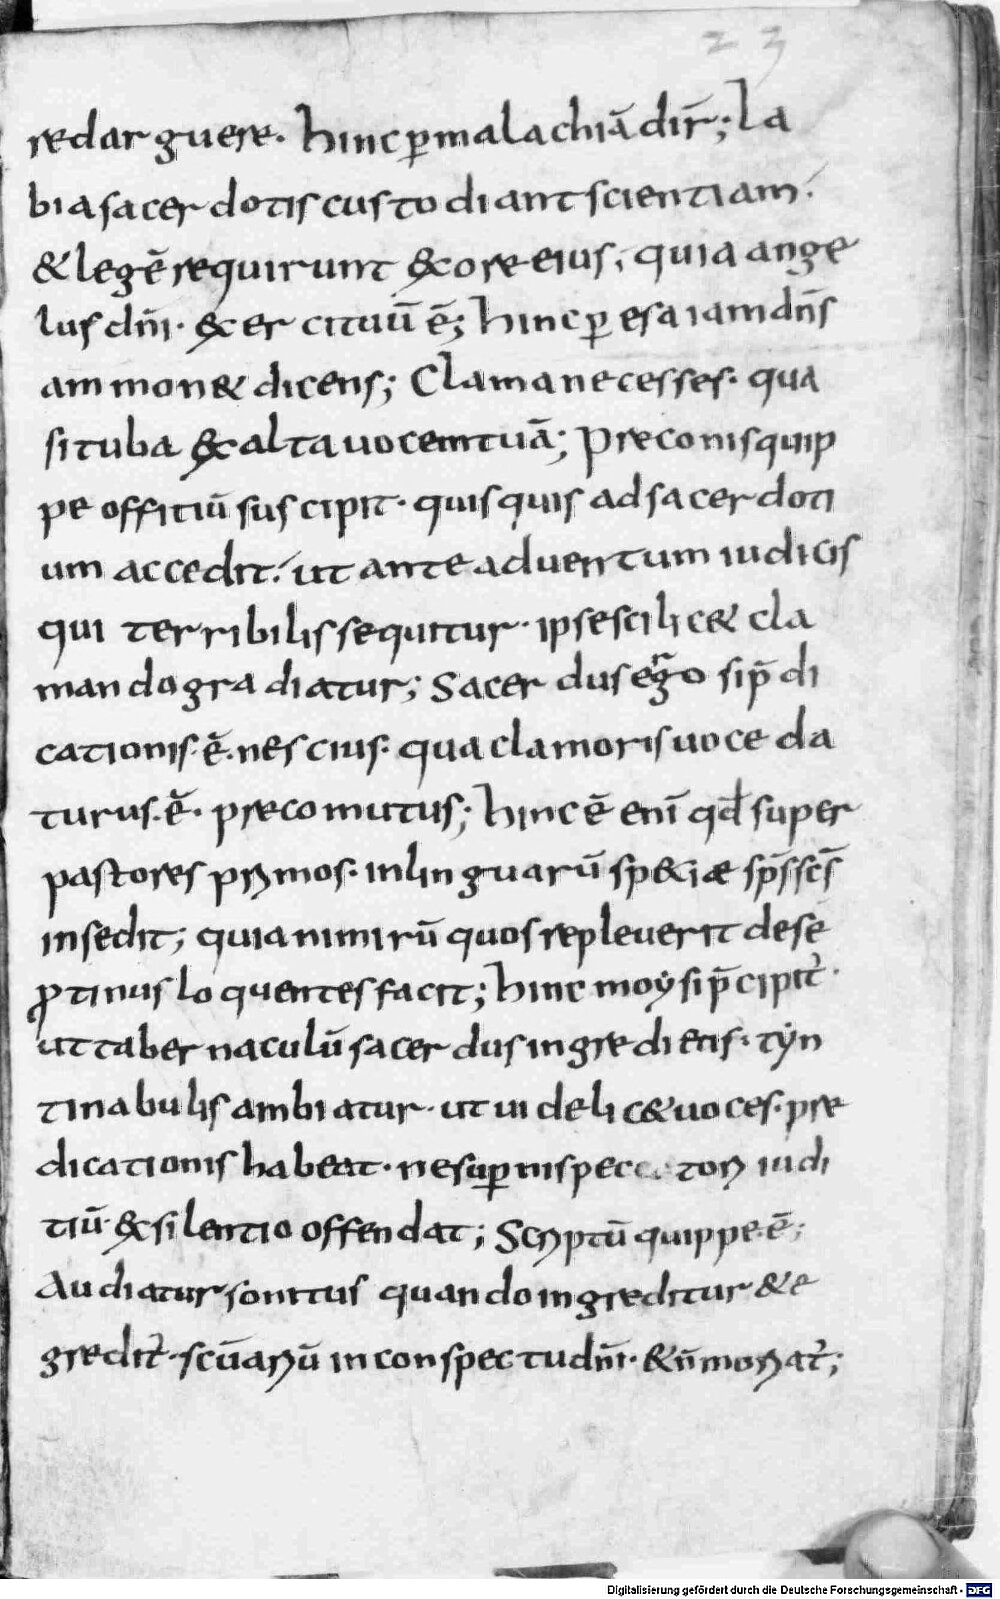 23
redarguere. hinc ꝑ malachiā dir̄; la
bia sacerdotis custodiant scientiam.
& legē requirunt ex ore eius, quia ange
lus dn̄i. exercituū ē; hinc ꝑ esaiam dn̄s
ammon& dicens; Clama ne cesses. qua
si tuba exalta uocem tuā; Preconis quip
pe offitiū suscipit. quisquis ad sacerdoti
um accedit. ut ante aduentum iudicis
qui terribilis sequitur. ipse scilic& cla
mando gradiatur; Sacerdus ergo si p̄di
cationis. ē. nescius. qua clamoris uoce da
turus. ē. preco mutus; hinc ē enī qd̄ super
pastores primos. in linguarū sp&iæ sp̄s sc̄s
insedit; quia nimirū quos repleuerit de sē
ꝓtinus loquentes facit; hinc moysi p̄cipit̄
ut tabernaculū sacerdus ingrediens. tyn
tinabulis ambiatur. ut uidelic& uoces. pre
dicationis habeat. ne suꝑni spectatoris iudi
tiū. ex silentio offendat; Scriptū quippe. ē;
Audiatur sonitus quando ingreditur & e
gredit̄. sc̄uariū in conspectu dn̄i. & n̄ moriat̄;
Digitalisierung gefördert durch die Deutsche Forschungsgemeinschaft - DFG